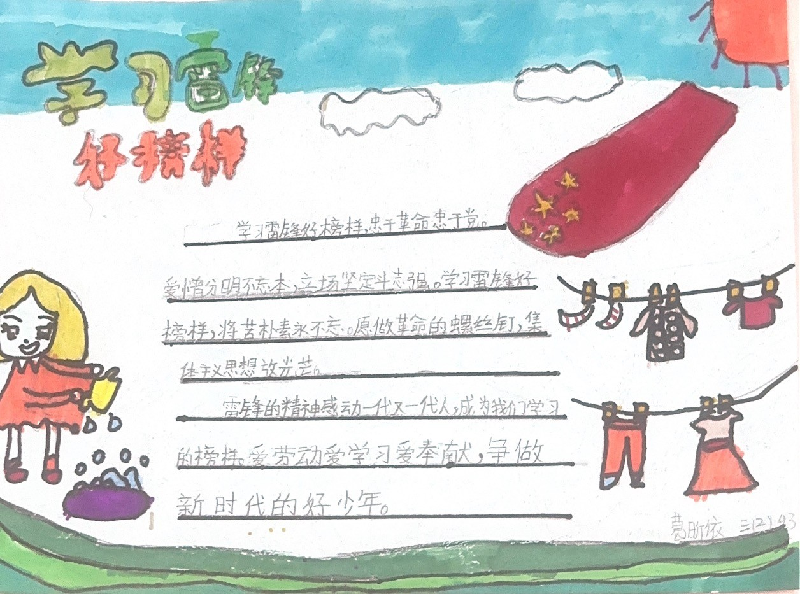 学习雷锋
好榜样
学习雷锋好榜样,忠于革命忠于党。
爱憎分明不忘本,立场坚定斗志强。学习雷锋好
榜样,艰苦朴素永不忘。愿做革命的螺丝钉,集
体主义思想放光芒。
雷锋的精神感动一代又一代人,成为我们学习
的榜样。爱劳动爱学习爱奉献,争做
新时代的好少年。
葛昕依 三(2) 43